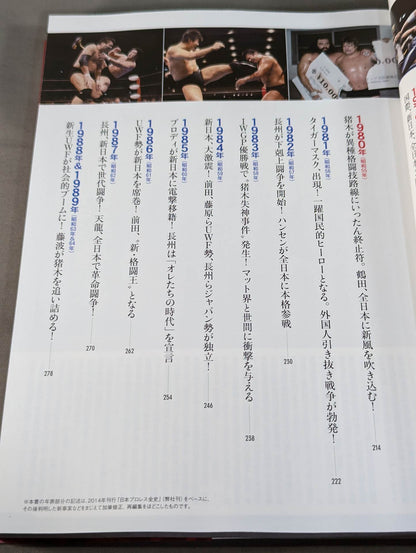 1980年（昭和55年）
猪木が異種格闘技路線にいったん終止符。鶴田、全日本に新風を吹き込む！
214
1981年（昭和56年）
タイガーマスク、出現！一躍国民的ヒーローとなる。外国人引き抜き戦争が勃発！
222
1982年（昭和57年）
長州が下剋上闘争を開始！ハンセンが全日本に本格参戦
230
1983年（昭和58年）
IWGP優勝戦で、“猪木失神事件”発生！マット界と世間に衝撃を与える
238
1984年（昭和59年）
新日本、大激震！前田、藤原らUWF勢、長州らジャパン勢が独立！
246
1985年（昭和60年）
ブロディが新日本に電撃移籍！長州は「オレたちの時代」を宣言
254
1986年（昭和61年）
UWF勢が新日本を席巻！前田、“新・格闘王”となる
262
1987年（昭和62年）
長州、新日本で世代闘争！天龍、全日本で革命闘争！
270
1988年＆1989年（昭和63年＆64年）
新生UWFが社会的ブームに！藤波が猪木を追い詰める！
278
※本書の年表部分の記述は、2014年刊行『日本プロレス全史』（弊社刊）をベースに、
その後判明した新事実などをまじえて加筆修正、再編集をほどこしたものです。